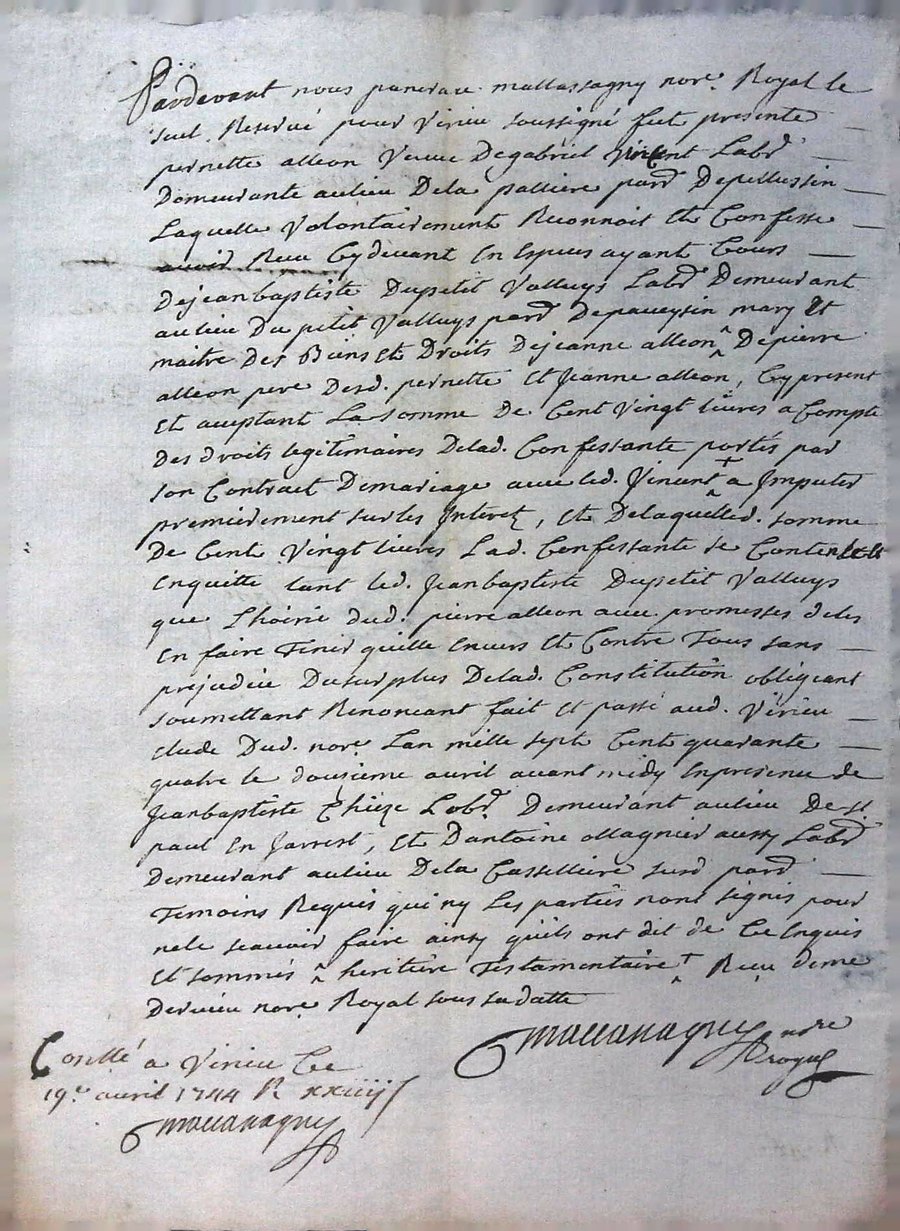 Pardevant nous pancrace mattassagny nore. Royal le
seul Reservé pour Virieu soussigné fut presente
pernette alleon Veuve Degabriel Vincent Labr
Demeurante aulieu Dela palliere parr Depellussin
Laquelle Volontairement Reconnoit Et Confesse
avoir Receu Cydevant En Especes ayant Cours
Dejeanbaptiste Dupetit Valluys Labr Demeurant
aulieu Du petit Valluys parr Depaveysin mary Et
maitre Des Biens Et Droits Dejeanne alleon ^ Depierre
alleon pere Desd. pernette Et Jeanne alleon, Cy present
Et acceptant La somme De Cent Vingt livres a Compte
Des droits legitimaires Delad. Confessante portés par
son Contract Demariage avec led. Vincent + a Imputer
premierement sur les Interetz, Et Delaquelled. somme
De Cent Vingt livres Lad. Confessante se Contente Et
Enquitte tant led. Jeanbaptiste Dupetit Valluys
que Lhoirie dud. pierre alleon avec promesses deles
En faire Tenir quitte Envers Et Contre Tous sans
prejudice Dusurplus Delad. Constitution obligeant
soumettant Renoncant fait Et passé aud. Virieu
Etude Dud. nore Lan mille sept Cent quarante
quatre le dousieme avril avant midy Enpresence de
Jeanbaptiste Labr. Demeurant aulieu De st.
paul En Jarrest, Et Dantoine Magnier aussy Labr
Demeurant aulieu Dela Casselliere surd parr
Temoins Requis qui ny Les parties nont signés pour
nele scavoir faire ainsy quils ont dit de Ce Enquis
Et sommés ^ heritiere Testamentaire + Receu deme
Dernieu nore Royal sous sadatte
Conllé a Virieu Ce
19e. avril 1744 R xxiiiijs